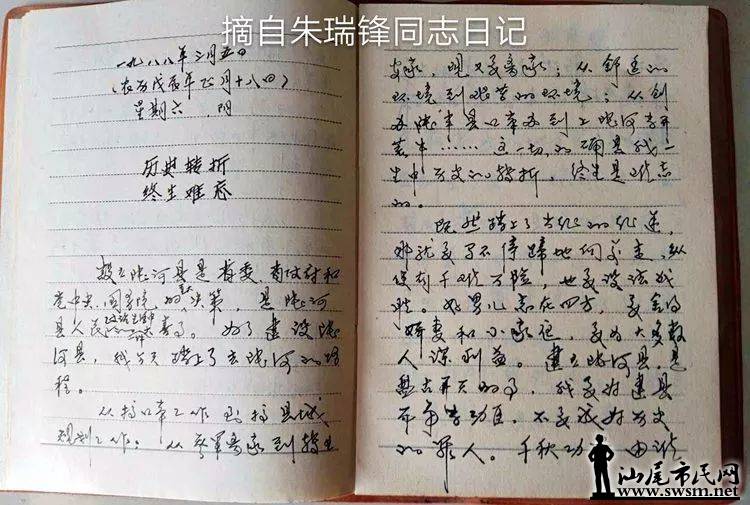 摘自朱瑞锋同志日记
一九八八年三月五日
(农历戊辰年正月十八日)
星期六 阴
历史转折
终生难忘
设立陆河县是省委、省政府和
党中央、国务院的重大决策，是陆河
县人民政治生活中的一大喜事。为了建设陆
河县，我今天踏上了去陆河的路
程。
从接口岸工作到接县城
规划工作；从
安家，现又离家；从舒适的
环境到艰苦的环境；从创
办陆丰县口岸办到上陆河去开
荒牛……这一切的确是我一
生中历史的转折，终生是难忘
的。
既然踏上了当代的征途，
那就要不停蹄地向前走，纵
使有千难万险，也要设法战
胜。好男儿志在四方，要舍得
娇妻和小家庭，要为大多数
人谋利益。建立陆河县，是
盘古开天的事，我要为建县
而争当功臣，不要成为历史
的罪人。千秋功
汕尾市民网
www.swsm.net